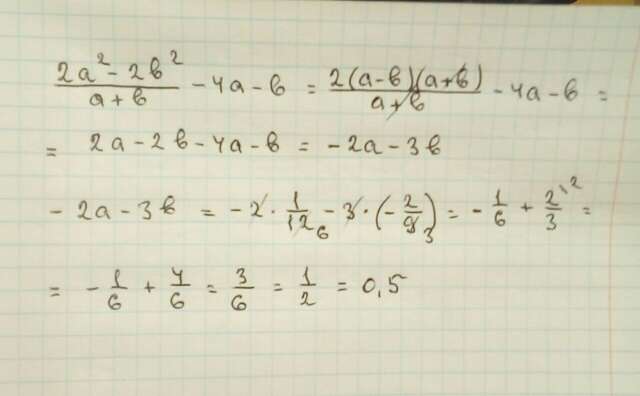 (2a² - 2в²)/(a + в) - 4a - в = (2(a-в)(a+в))/(a+в) - 4a - в =
= 2a - 2в - 4a - в = -2a - 3в
- 2a - 3в = -2 · 1/12 6 - 3 · (-2/9 3) = -1/6 + 2/3 \2 =
= -1/6 + 4/6 = 3/6 = 1/2 = 0,5